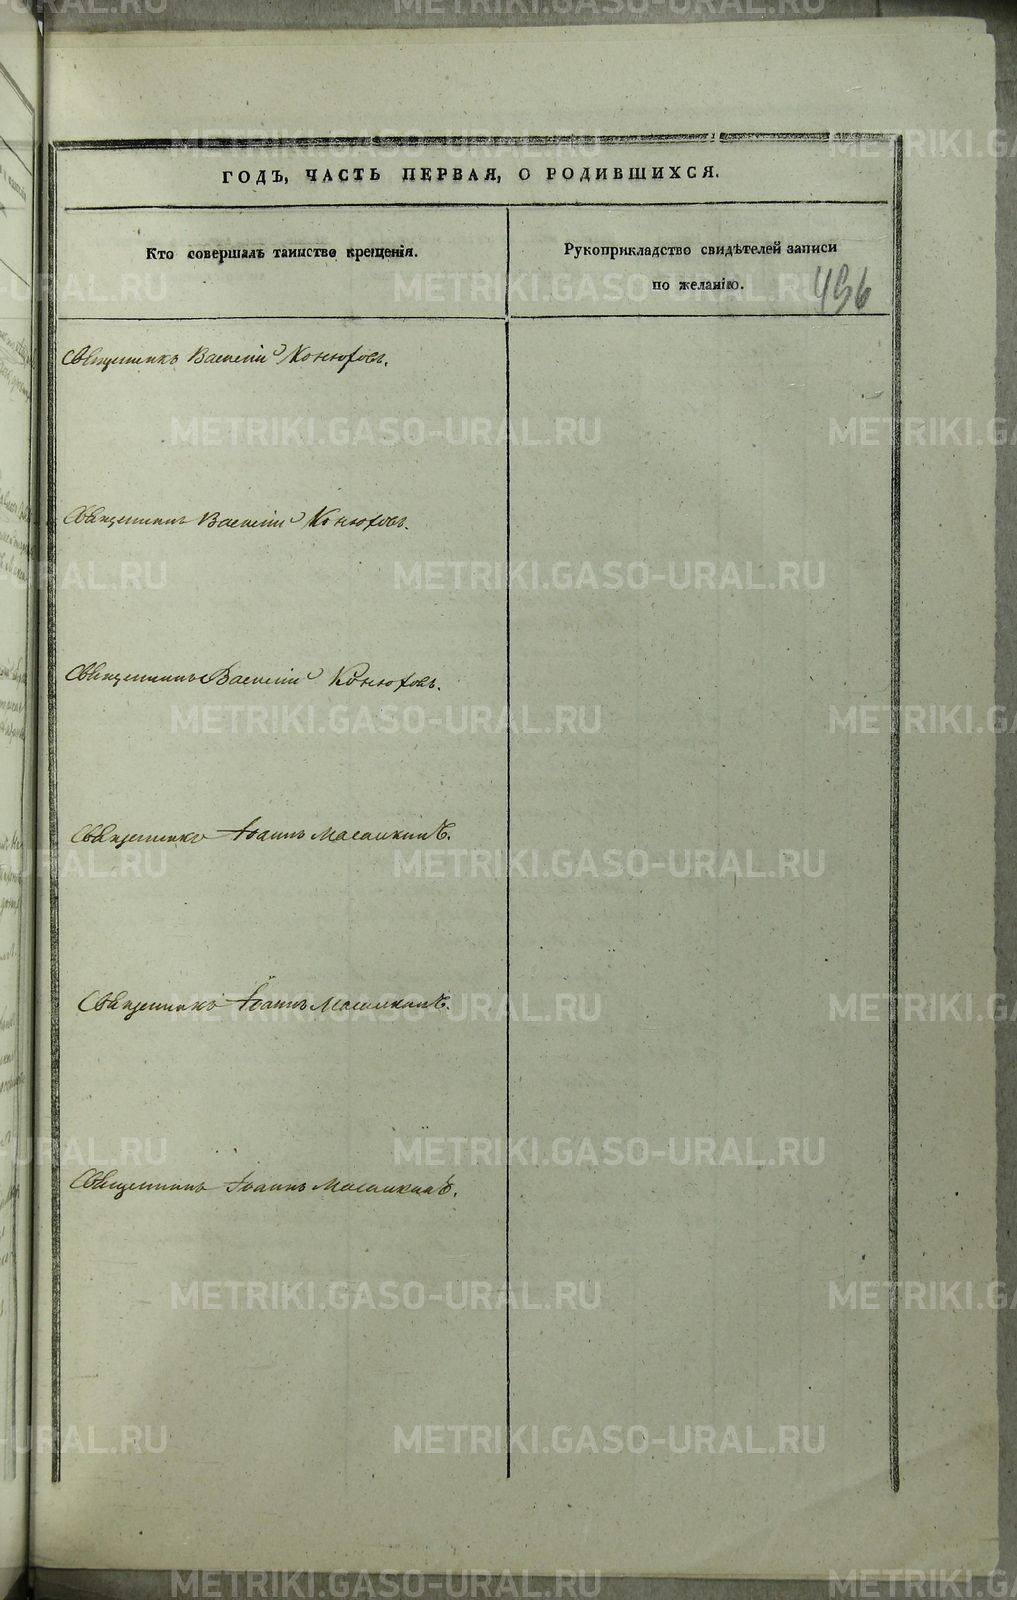 ГОДЪ, ЧАСТЬ ПЕРВАЯ, О РОДИВШИХСЯ.
Кто совершалъ таинство крещенія.
Рукоприкладство свидѣтелей записи
по желанію.
496
Священникъ Василій Конюховъ.
Священникъ Василій Конюховъ.
Священникъ Василій Конюховъ.
Священникъ Іоаннъ
Священникъ Іоаннъ
Священникъ Іоаннъ
METRIKI.GASO-URAL.RU